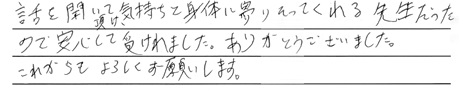 話を聞いて頂け気持ちと身体に寄りそってくれる先生だった
ので安心して負けれました。ありがとうございました。
これからもよろしくお願いします。